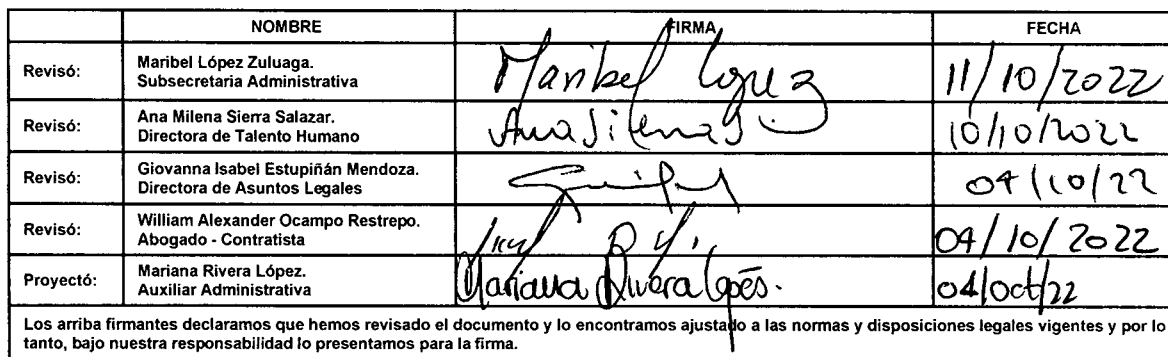 NOMBRE FIRMA FECHA
Revisó: Maribel López Zuluaga.
Subsecretaria Administrativa
Maribel López 11/10/2022
Revisó: Ana Milena Sierra Salazar.
Directora de Talento Humano
10/10/2022
Revisó: Giovanna Isabel Estupiñán Mendoza.
Directora de Asuntos Legales
04/10/22
Revisó: William Alexander Ocampo Restrepo.
Abogado - Contratista
04/10/2022
Proyectó: Mariana Rivera López.
Auxiliar Administrativa
Mariana Rivera López. 04/oct/22
Los arriba firmantes declaramos que hemos revisado el documento y lo encontramos ajustado a las normas y disposiciones legales vigentes y por lo
tanto, bajo nuestra responsabilidad lo presentamos para la firma.